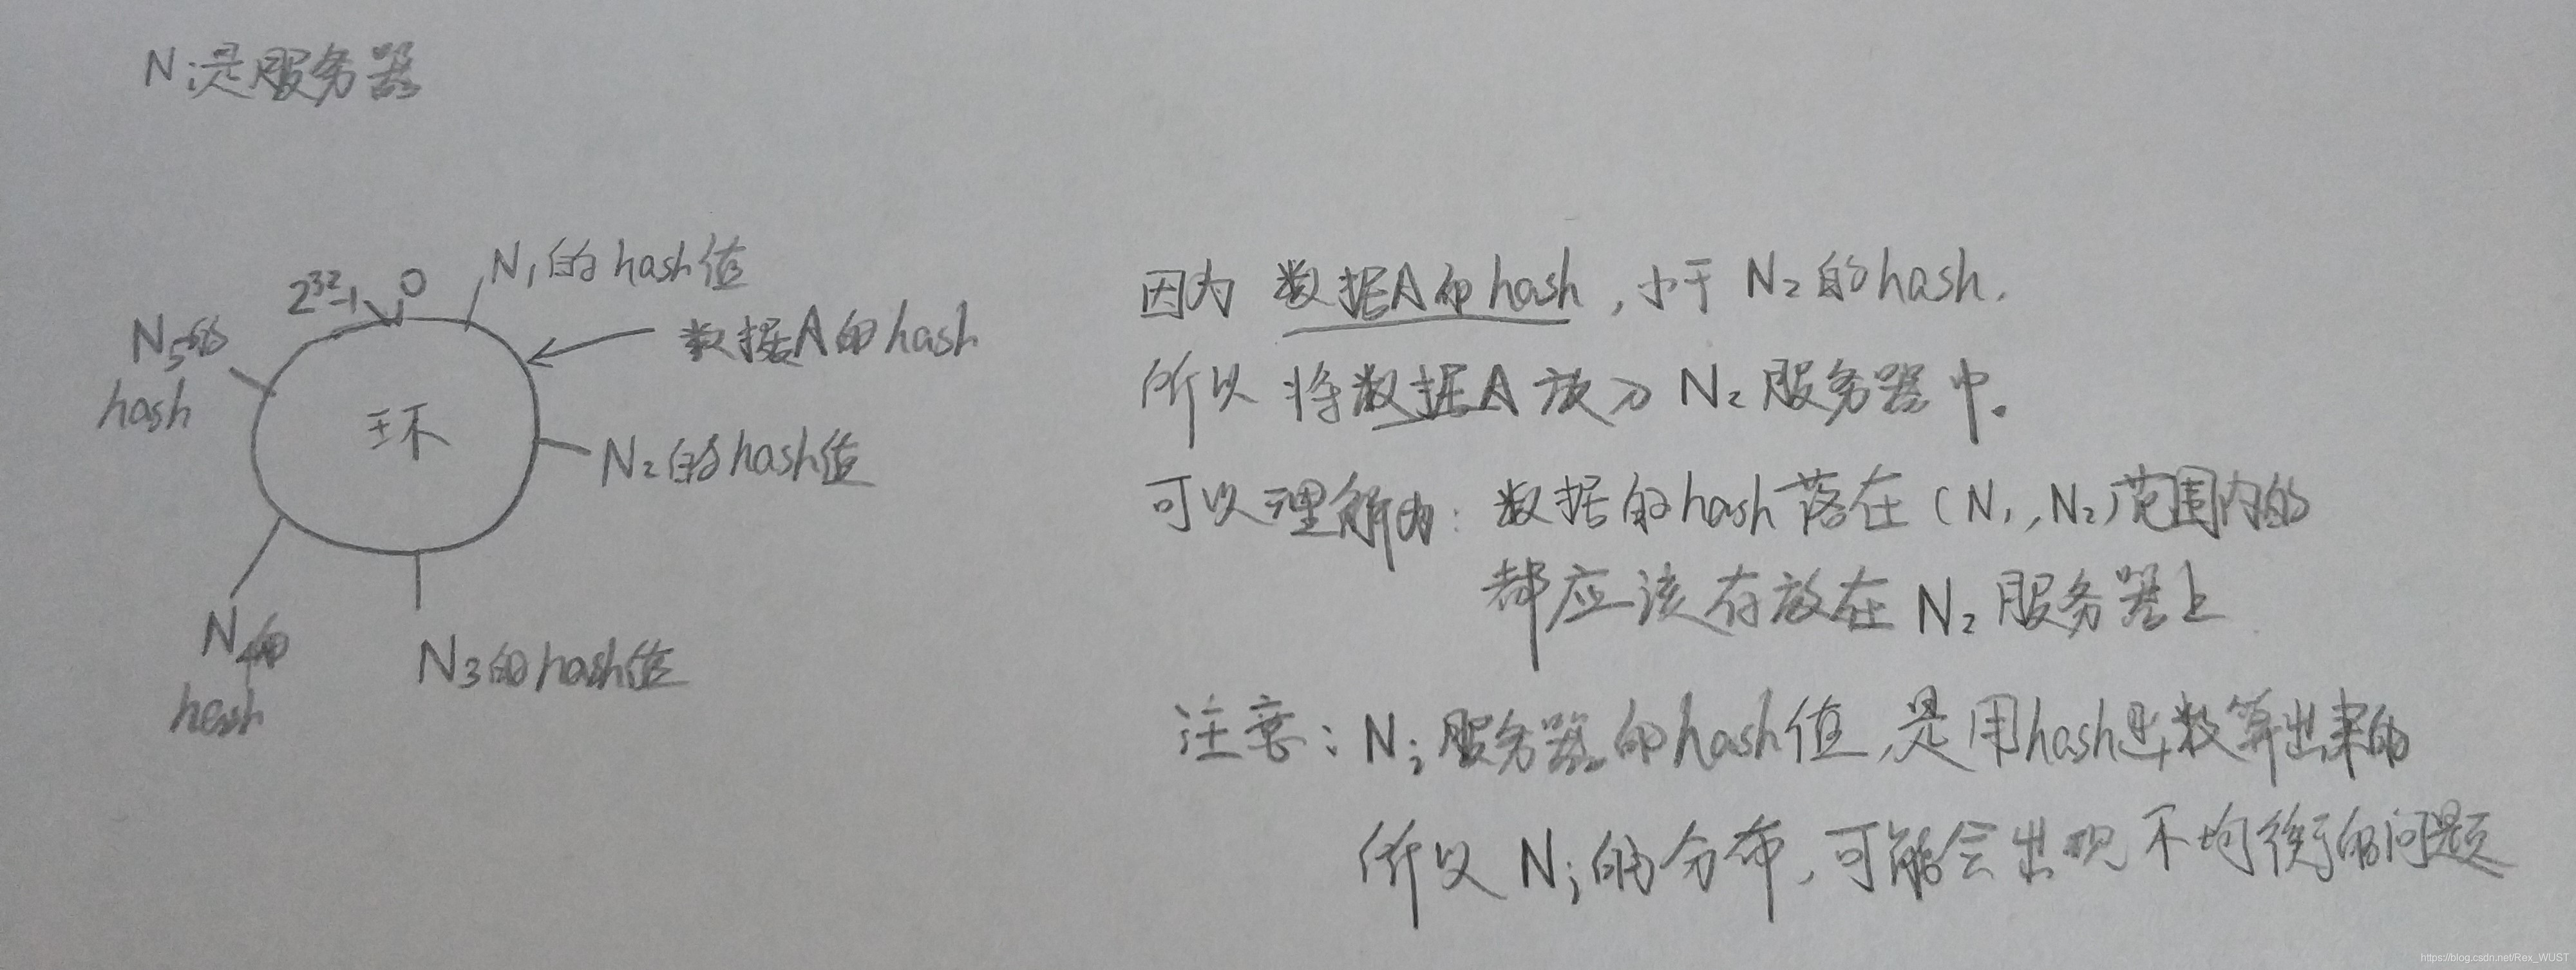 Ni是服务器
2³²-1
0
N₁的hash值
数据A的hash
N₅的
hash
环
N₂的hash值
N₄的
hash
N₃的hash值
因为 数据A的hash，小于 N₂的hash.
所以 将数据A 放入 N₂服务器中。
可以理解为: 数据的hash落在 (N₁, N₂)范围内的
都应该存放在 N₂ 服务器上
注意: Ni服务器的hash值,是用hash函数算出来的
所以 Ni的分布,可能会出现不均衡的问题
https://blog.csdn.net/Rex_WUST